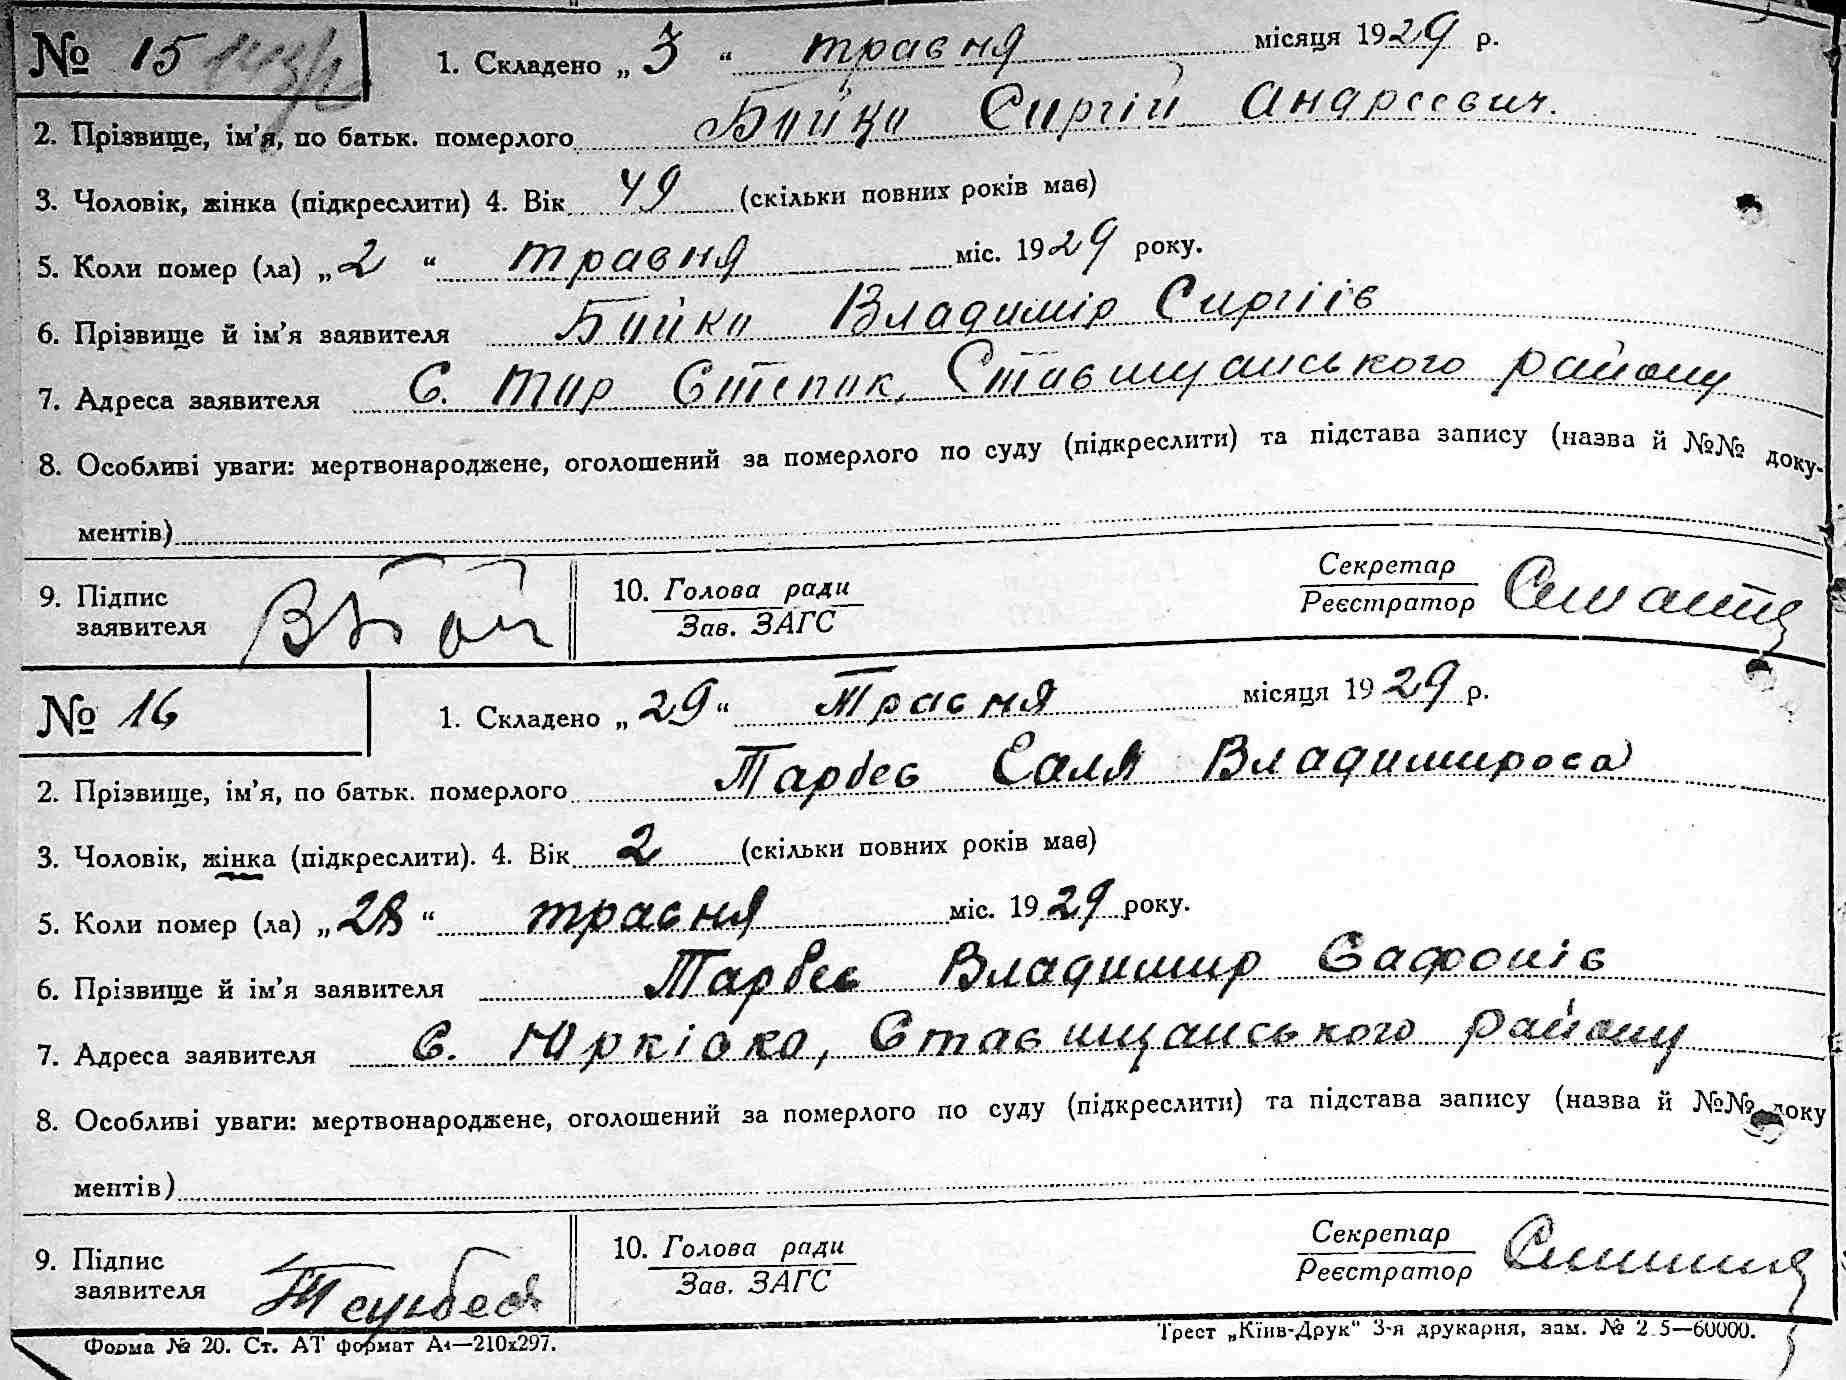 № 15 1. Складено „ 3 “ травня місяця 1929 р.
2. Прізвище, ім'я, по батьк. померлого Бойко Сиргій Андрєєвич.
3. Чоловік, жінка (підкреслити) 4. Вік 49 (скільки повних років має)
5. Коли помер (ла) „ 2 “ травня міс. 1929 року.
6. Прізвище й ім'я заявителя Бойко Владимір Сиргіїв
7. Адреса заявителя С. Ставищанського району
8. Особливі уваги: мертвонароджене, оголошений за померлого по суду (підкреслити) та підстава запису (назва й №№ доку-
ментів)
9. Підпис заявителя
10. Голова ради
Зав. ЗАГС
Секретар
Реєстратор
№ 16 1. Складено „ 29 “ Травня місяця 1929 р.
2. Прізвище, ім'я, по батьк. померлого Тарбеє Галя Владимирова
3. Чоловік, жінка (підкреслити). 4. Вік 2 (скільки повних років має)
5. Коли помер (ла) „ 28 “ травня міс. 1929 року.
6. Прізвище й ім'я заявителя Тарбеє Владимир Сафонів
7. Адреса заявителя С. Юрківка, Ставищанського району
8. Особливі уваги: мертвонароджене, оголошений за померлого по суду (підкреслити) та підстава запису (назва й №№ доку
ментів)
9. Підпис заявителя
10. Голова ради
Зав. ЗАГС
Секретар
Реєстратор
Форма № 20. Ст. АТ формат А4—210x297.
Трест „Київ-Друк“ 3-я друкарня, зам. № 2 5—60000.